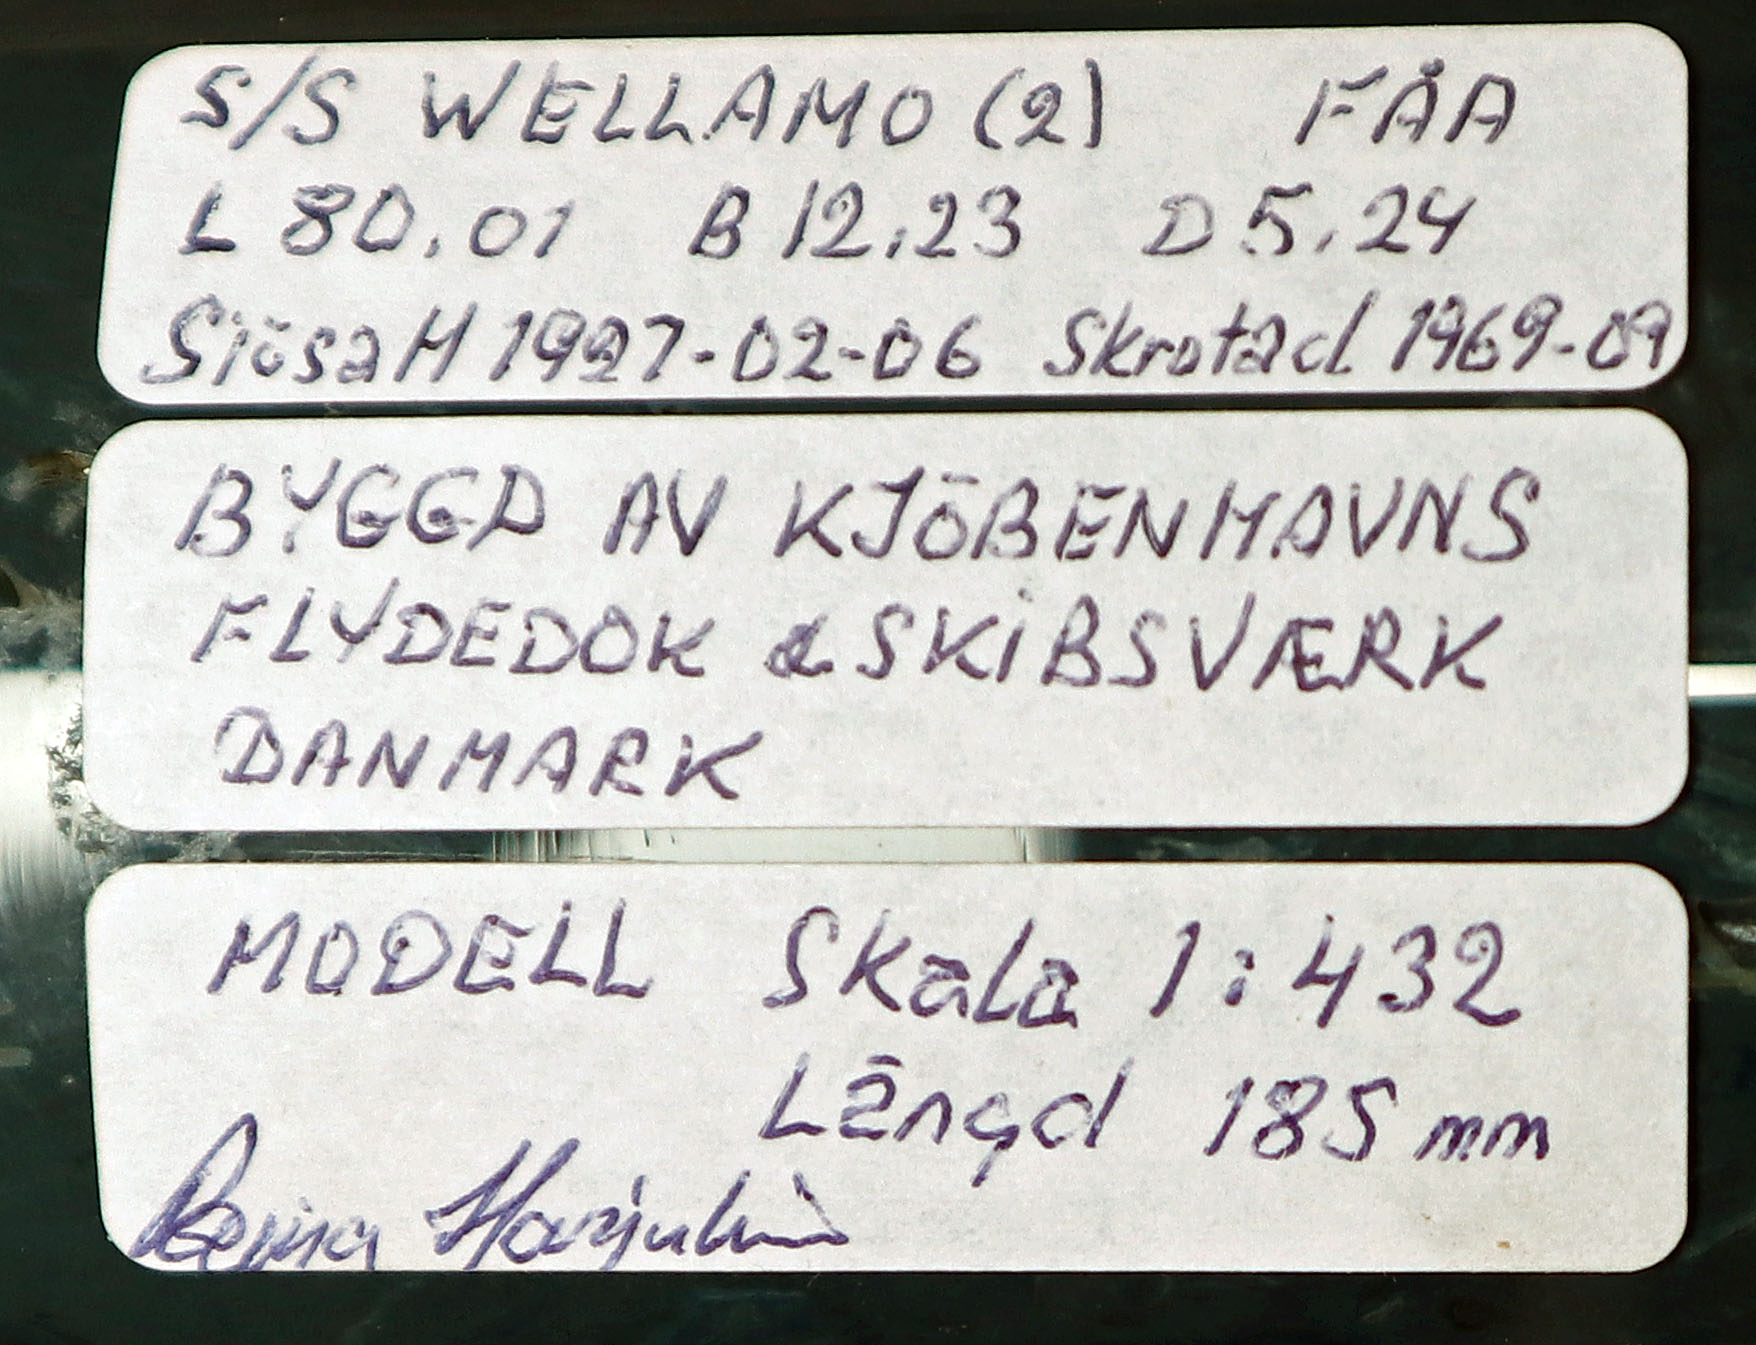 S/S WELLAMO (2) FÅA
L 80,01 B 12,23 D 5,24
Sjösatt 1927-02-06 Skrotad 1969-09
BYGGD AV KJÖBENHAVNS
FLYDEDOK & SKIBSVÆRK
DANMARK
MODELL Skala 1:432
Längd 185 mm